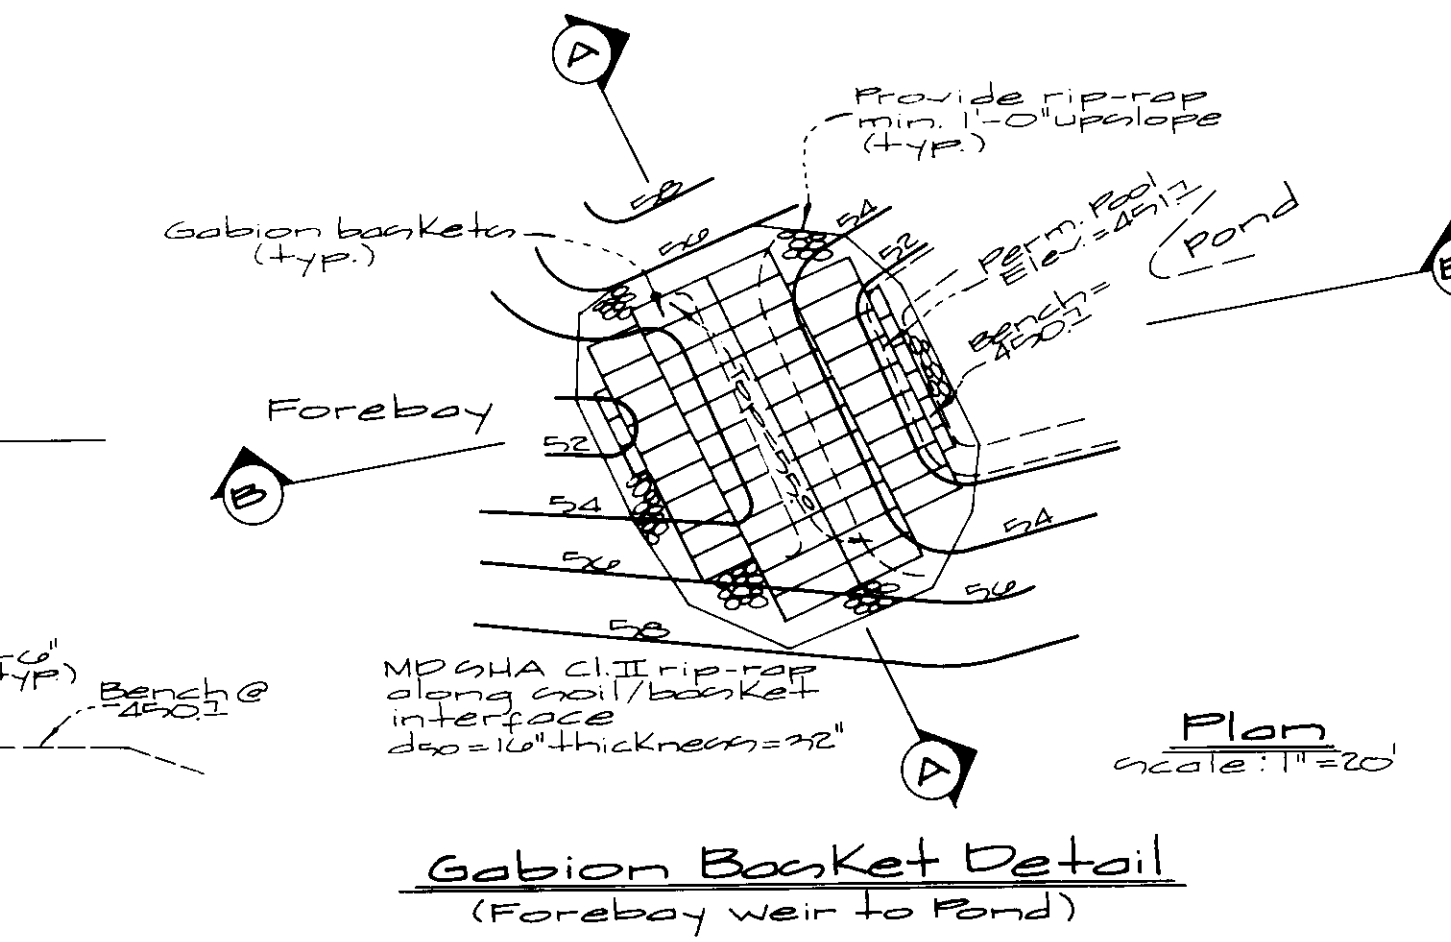 A
Provide rip-rap
min. 1'-0" upslope
(typ.)
58
Gabion baskets
(typ.)
56
54
52
Perm. Pool
Elev.=451.1
Pond
Bench=
450.1
Forebay
B
52
54
54
56
56
58
-6"
typ.)
Bench @
450.1
MD SHA Cl. II rip-rap
along soil/basket
interface
d50=16" thickness=32"
A
Plan
scale: 1"=20'
Gabion Basket Detail
(Forebay weir to Pond)